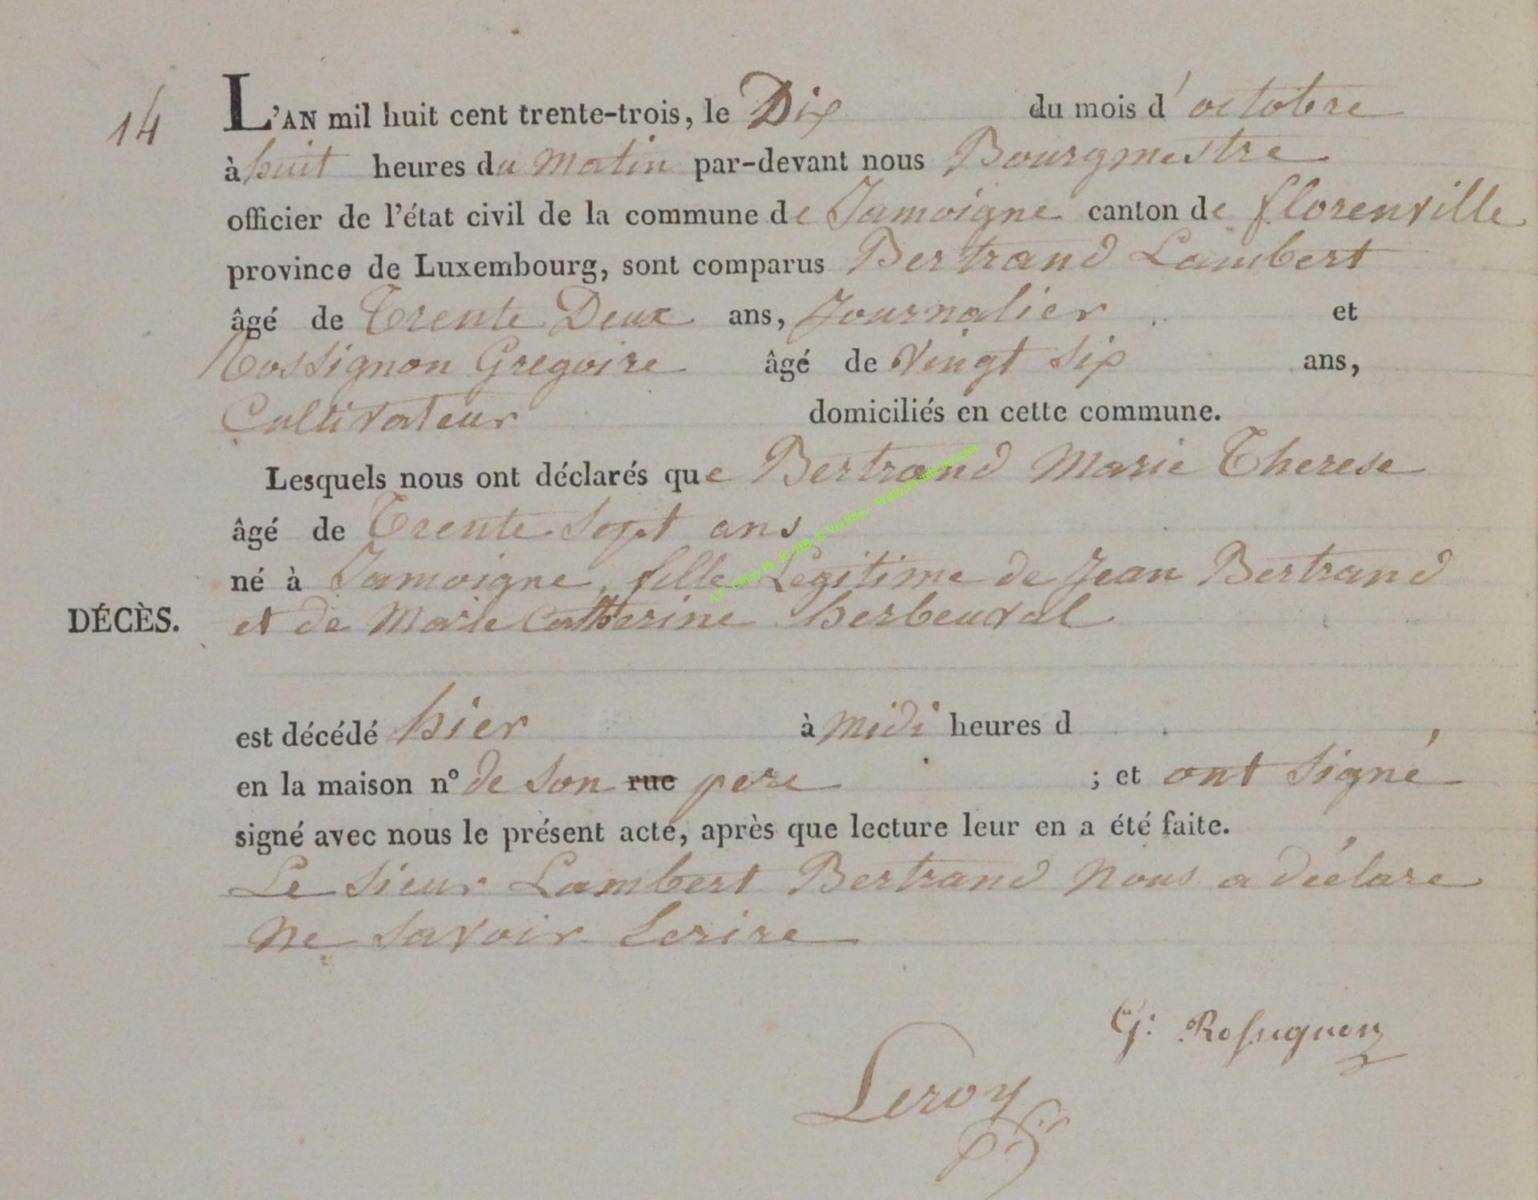 14
L'AN mil huit cent trente-trois, le Dix du mois d'octobre
à huit heures du Matin par-devant nous Bourgmestre
officier de l'état civil de la commune de Jamoigne canton de florenville
province de Luxembourg, sont comparus Bertrand Lambert
âgé de Trente Deux ans, Journalier et
Rossignon Gregoire âgé de Vingt Six ans,
Cultivateur domiciliés en cette commune.
Lesquels nous ont déclarés que Bertrand Marie Therese
âgé de Trente Sept ans
né à Jamoigne, fille Légitime de Jean Bertrand
DÉCÈS. et de Marie Catherine herbeuval
est décédé hier à Midi heures d
en la maison n° de Son rue pere ; et ont Signé
signé avec nous le présent acte, après que lecture leur en a été faite.
Le Sieur Lambert Bertrand Nous a déclare
Ne Savoir Ecrire
G: Rossignon
Leroy